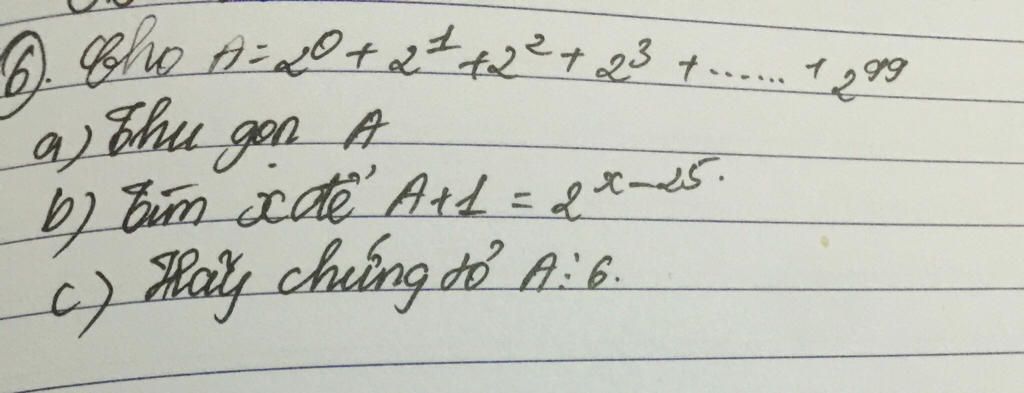 6. Cho A = 2⁰ + 2¹ + 2² + 2³ + ...... + 2⁹⁹
a) Thu gọn A
b) Tìm x để A+1 = 2ˣ⁻²⁵.
c) Hãy chứng tỏ A⋮6.